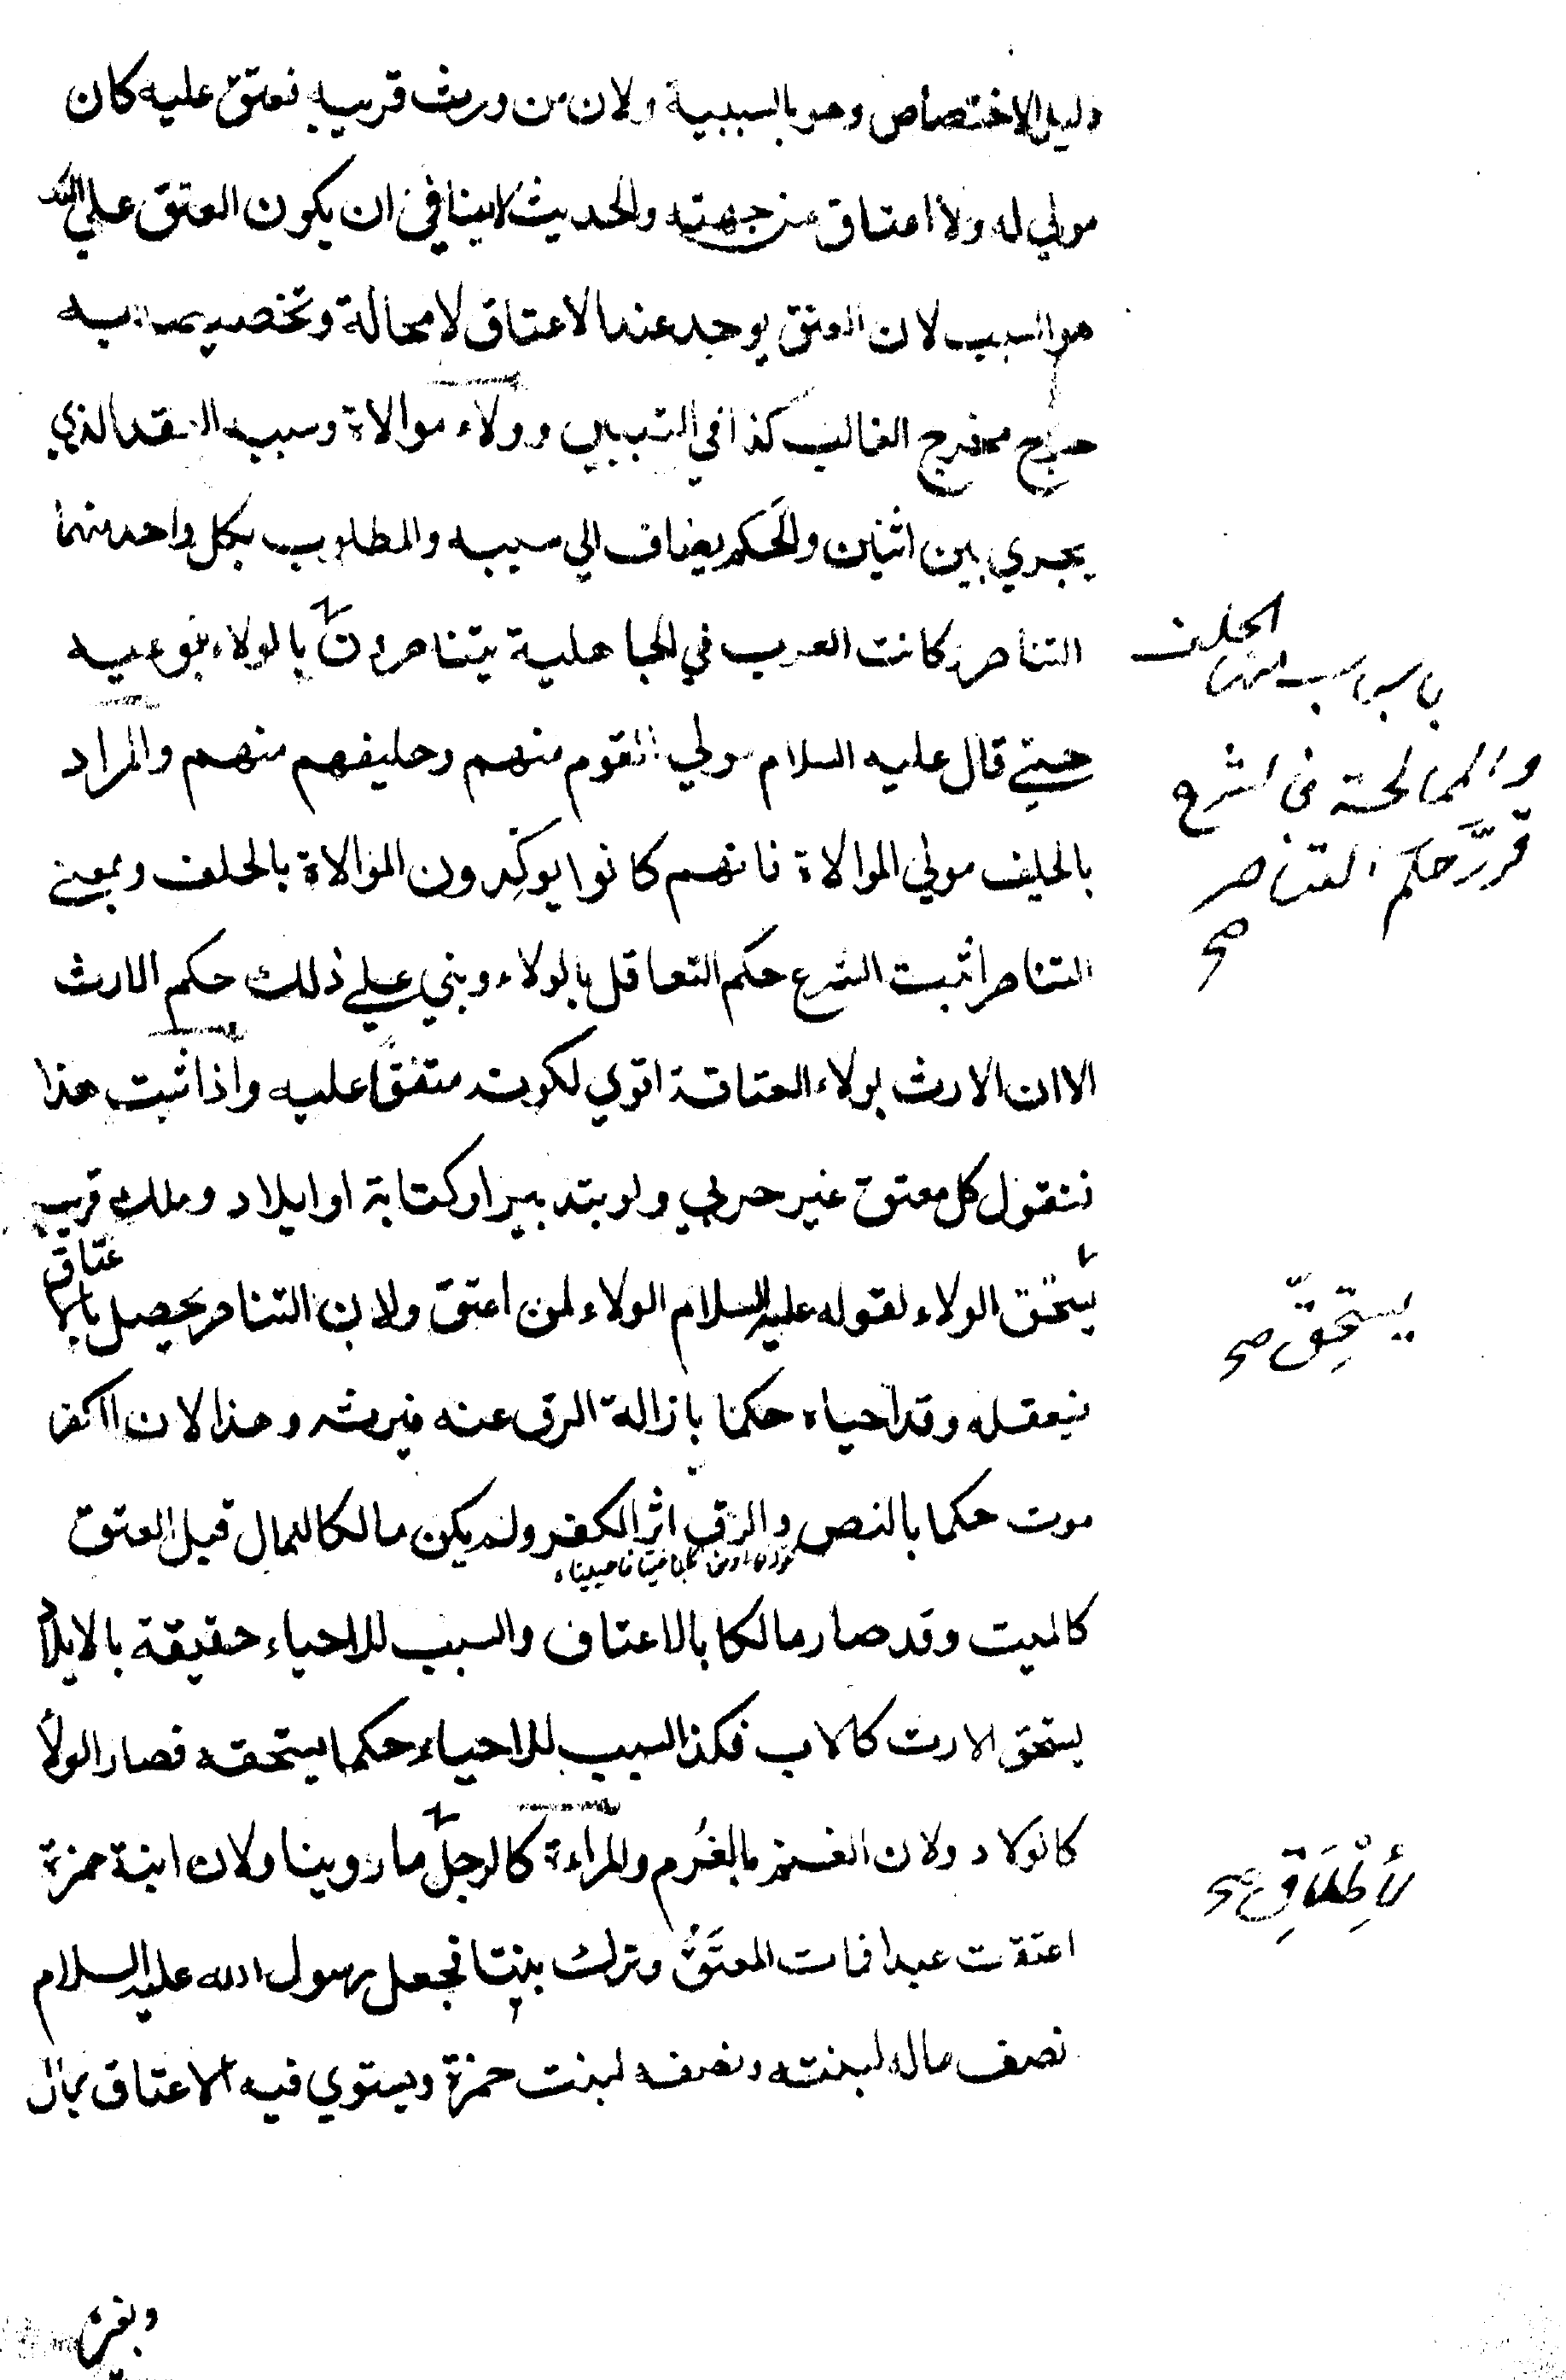 دليل الاختصاص وهو بالسببية ولان من ورث قريبه فعتق عليه كان
مولي له ولا اعتاق من جهته والحديث لا ينافي ان يكون العتق علي انه
هو السبب لان العتق يوجد عند الاعتاق لا محالة وتخصيصه به
خرج مخرج الغالب كذا في التبيين وولاء موالاة وسببه العقد الذي
يجري بين اثنين والحكم يضاف الي سببه والمطلوب بكل واحد منهما
التناصر وكانت العرب في الجاهلية يتناصرون بالولاء بنوعيه
باسباب منها الحلف
والممالحة في الشرع
قرّر حكم التناصر
صح
حتي قال عليه السلام مولي القوم منهم وحليفهم منهم والمراد
بالحليف مولي الموالاة فانهم كانوا يوكدون الموالاة بالحلف وبمعني
التناصر اثبت الشرع حكم التعاقل بالولاء وبني علي ذلك حكم الارث
الا ان الارث بولاء العتاقة اقوي لكونه متفقا عليه واذا ثبت هذا
فنقول كل معتق غير حربي ولو بتدبير او كتابة او ايلاد وملك قريب
يستحق الولاء لقوله عليه السلام الولاء لمن اعتق ولان التناصر يحصل بالاعتاق
يستحقّ صح
فيعقله وقد احياه حكما بازالة الرق عنه فيرثه وهذا لان الكفر
موت حكما بالنص والرق اثر الكفر ولم يكن مالكا للمال قبل العتق
ميتا فاحييناه
كالميت وقد صار مالكا بالاعتاق والسبب للاحياء حقيقة بالايلاد
يستحق الارث كالاب فكذا السبب للاحياء حكما يستحقه فصار الولا
كالولاد ولان الغنم بالغُرم والمراءة كالرجل ما روينا ولان ابنة حمزة
لأطلاق صح
اعتقت عبدا فمات المعتَق وترك بنتا فجعل رسول الله عليه السلام
نصف ماله لبنته ونصفه لبنت حمزة ويستوي فيه الاعتاق بمال
وبغيره